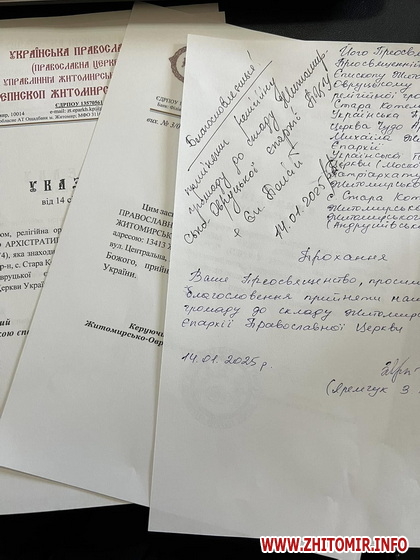 УКРАЇНСЬКА ПРАВОСЛ
(ПРАВОСЛАВНА ЦЕРК
УПРАВЛІННЯ ЖИТОМИРСЬК
ЄПИСКОП ЖИТОМИРС
ЄДРПОУ 13570561
, 10014
УКА
від 14 с
ом, релігійна ор
О АРХІСТРАТИГ
74), яка знаходи
р-н, с. Стара Ко
вруцької є
Церкви Укра
ЄДРПОУ
Цим зас
ПРАВОСЛАВН
ЖИТОМИРСЬК
адресою: 13413 У
вул. Центральна,
Божого, прийн
України.
Керуючи
Житомирсько-Ов
Благословення!
прийняти релігійну
громаду до складу Житомир-
сько-Овруцької єпархії ПЦУ
є Єп. Паїсій
14.01.2025
Його Преосвя
Преосвященній
Єпископу Жито
Овруцькому
релігійної гр
Стара Котел
Українська П
Церква Чудо Ар
Михаїла Жи
Єпархії
Української П
Церкви (Моско
Патріархату
Житомирськ
с. Стара Ко
Житомирськ
Житомирської
(Андрушівськ
Прохання
Ваше Преосвященство, просим
благословення прийняти наш
громаду до складу Житомир
Єпархії Православної Церкви
14.01.2025 р.
(Яремчук З
WWW.ZHITOMIR.INFO